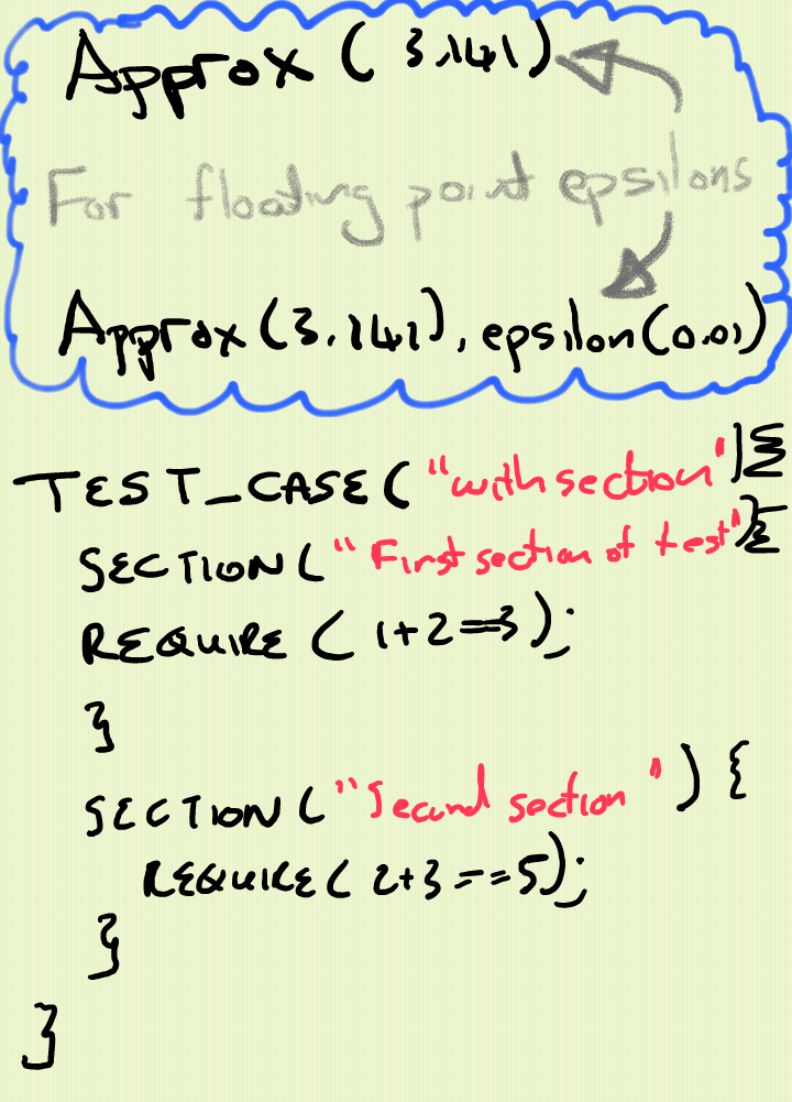 Approx (3.141)
For floating point epsilons
Approx(3.141).epsilon(0.01)
TEST_CASE("with section"){
SECTION("First section of test"){
REQUIRE (1+2==3);
}
SECTION("Second section"){
REQUIRE(2+3==5);
}
}